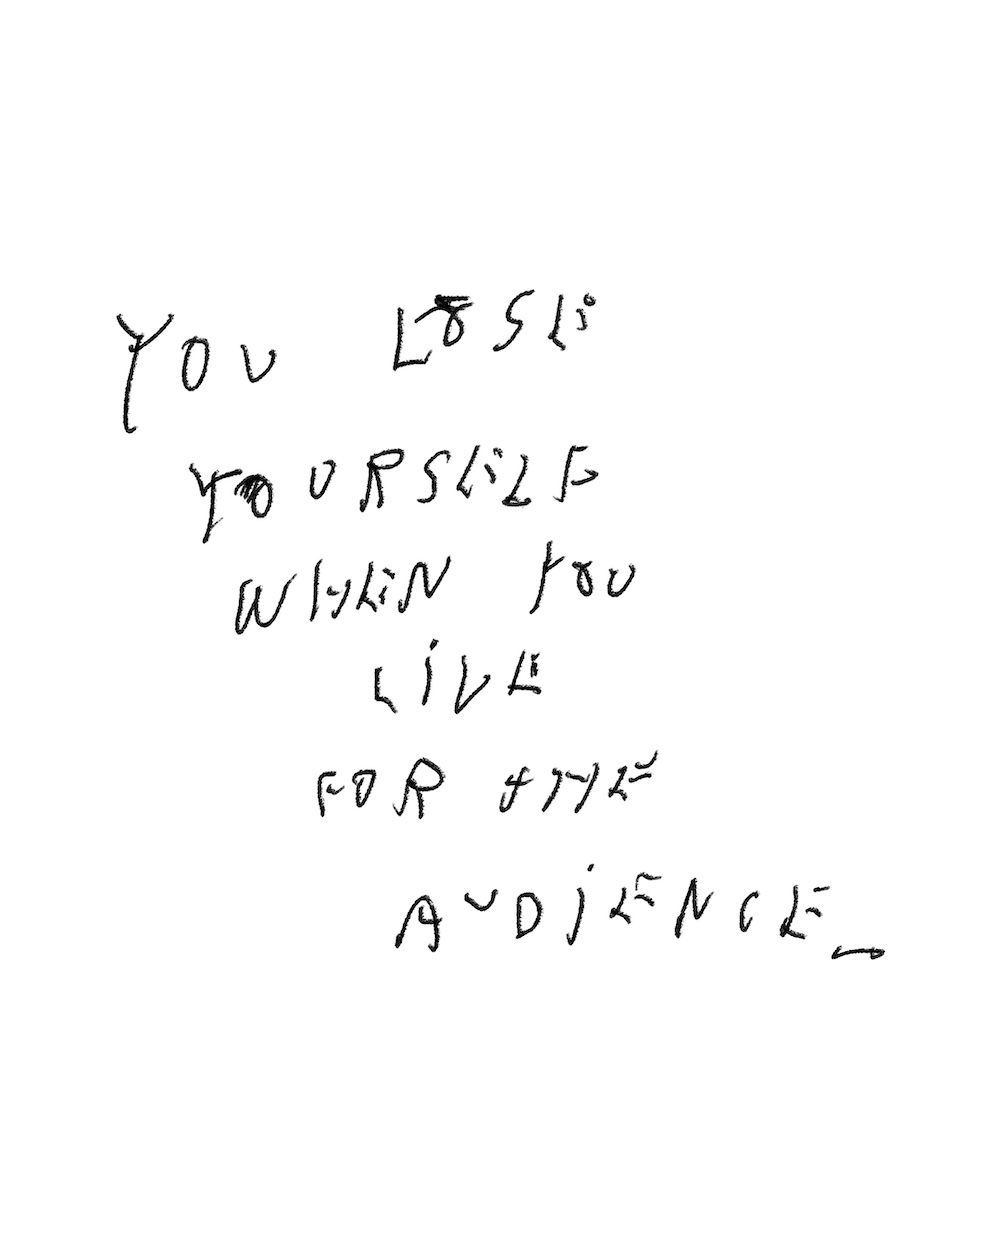 YOU LOSE
YOURSELF
WHEN YOU
LiVE
FOR THE
AUDiENCE_